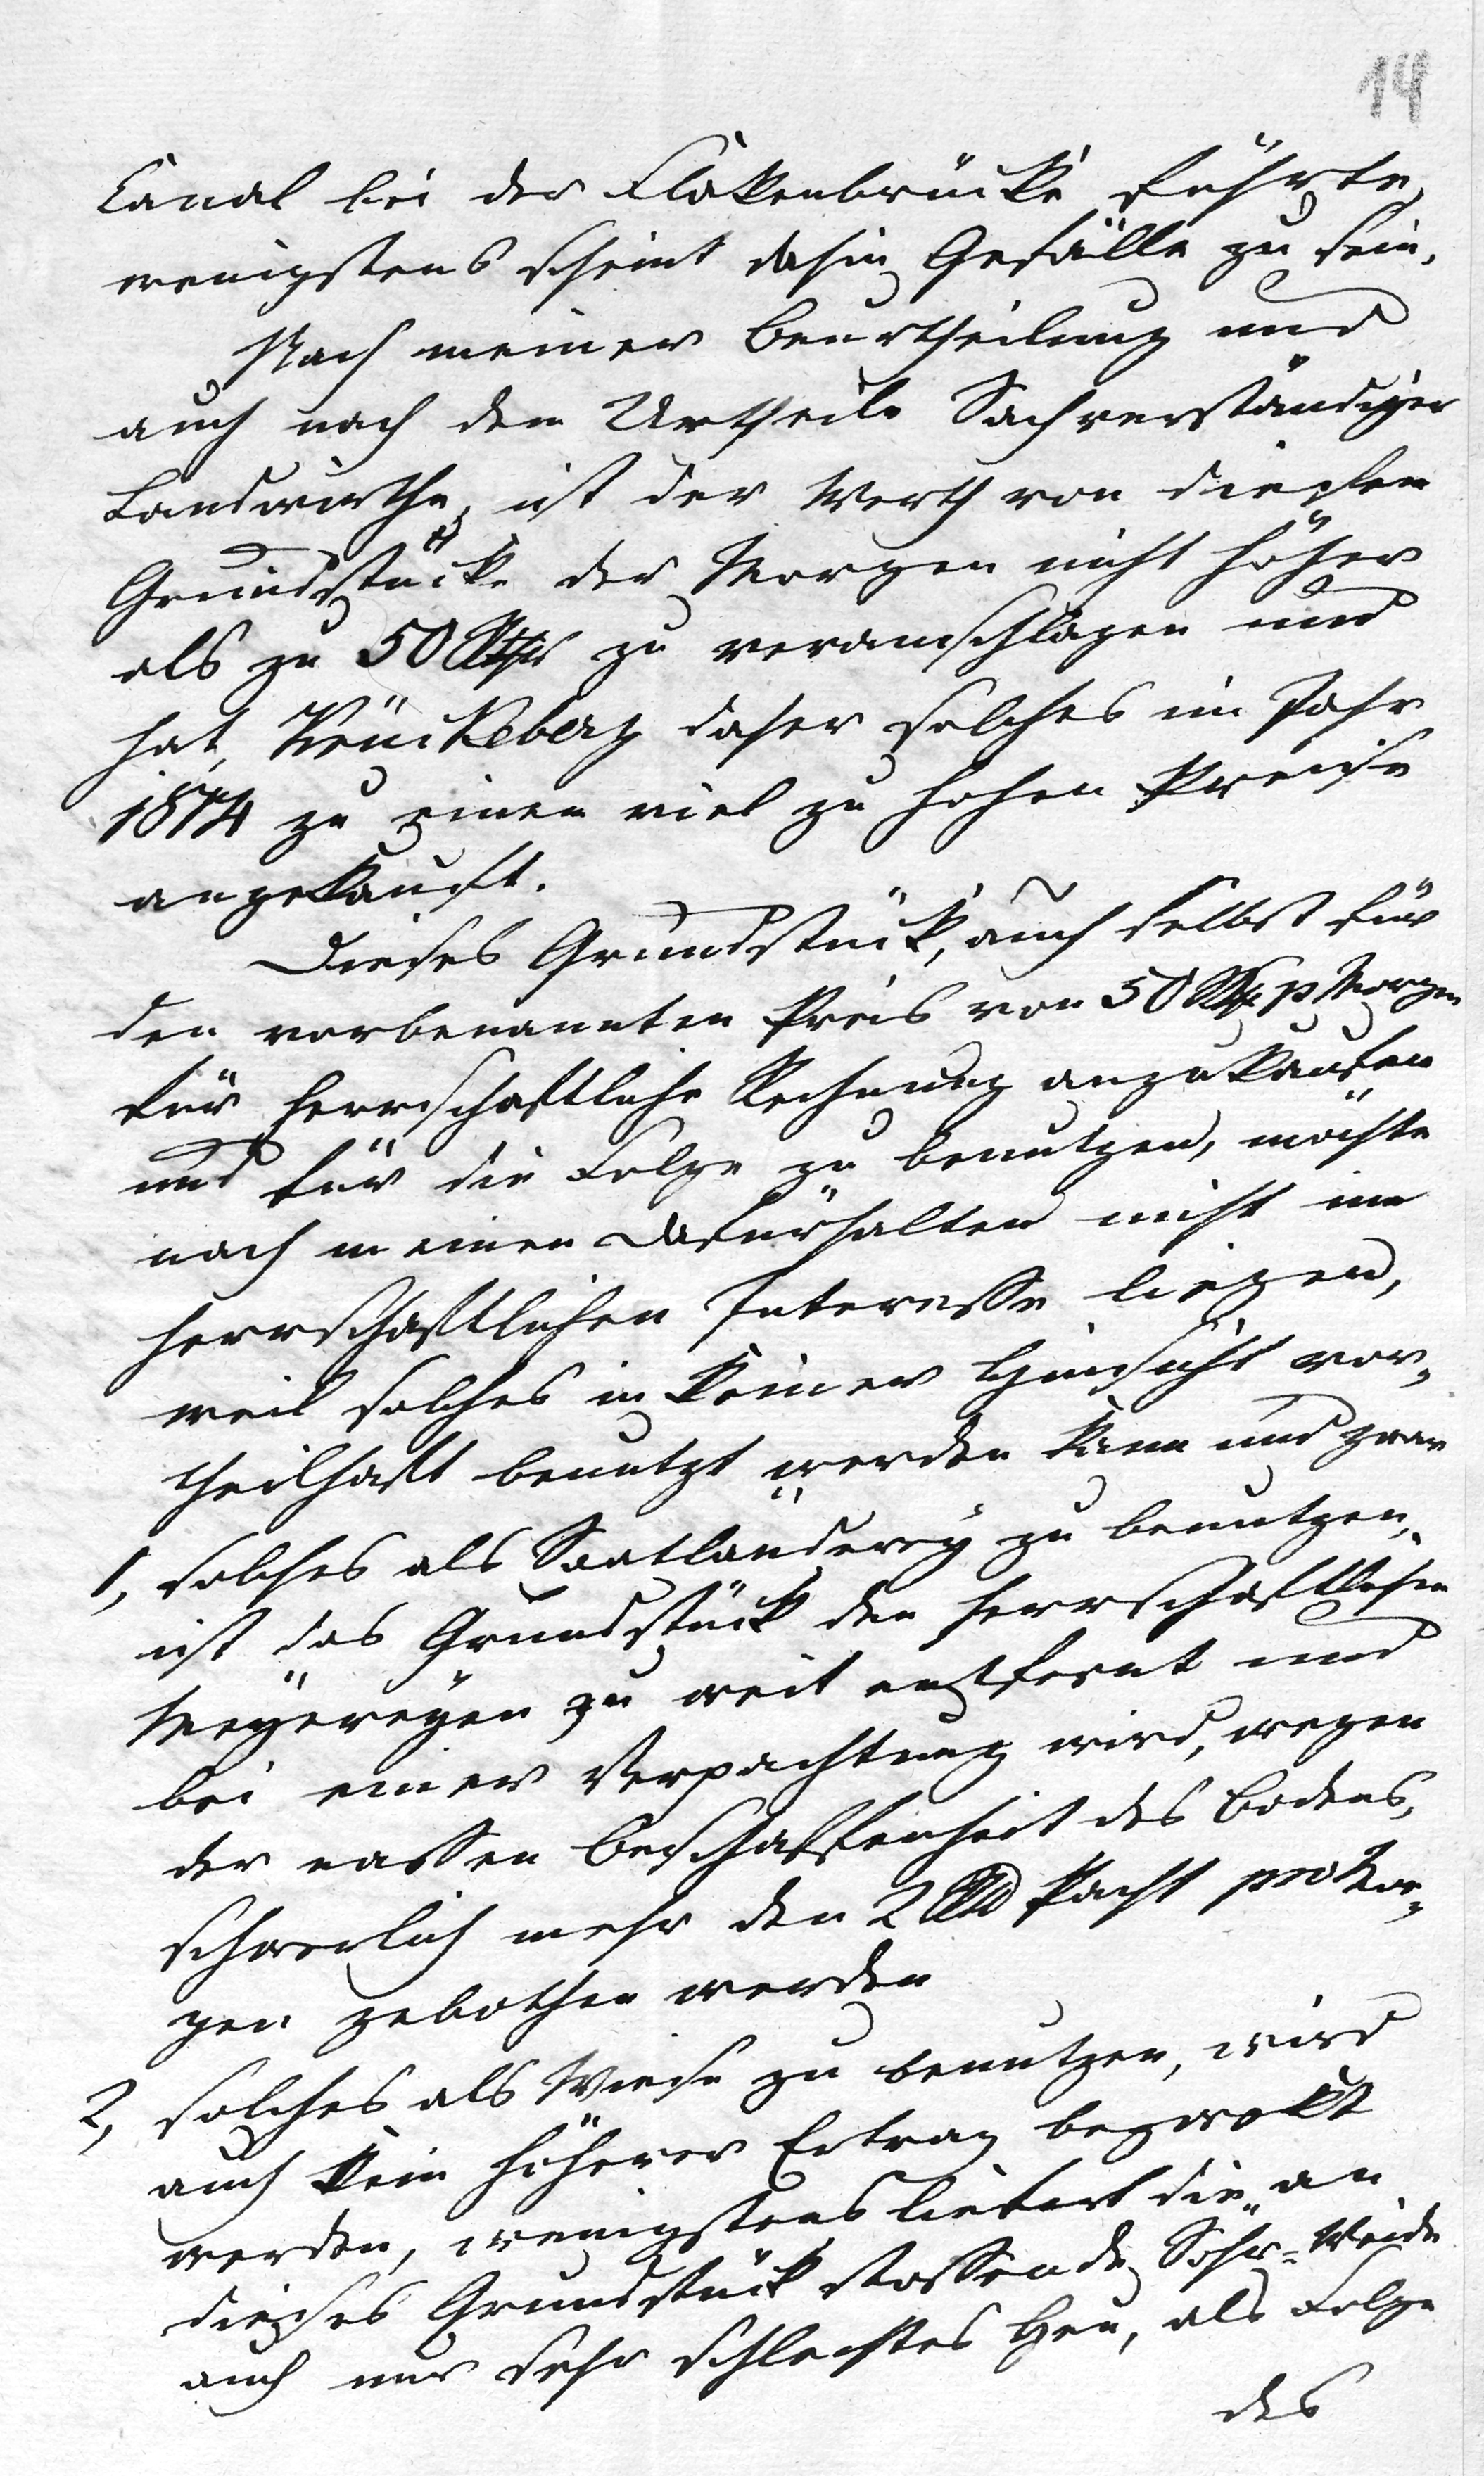 14
Canal bei der Flakenbrücke führte,
wenigstens scheint dahin Gefälle zu sein.
Nach meiner Beurtheilung und
auch nach dem Urtheile Sachverständiger
Landwirthe, ist der Werth von diesem
Grundstücke der Morgen nicht höher
als zu 50 Rthlr zu veranschlagen und
hat, Brückeberg daher solches im Jahr
zu einem viel zu hohen Preise
angekauft.
Dieses Grundstück, auch selbst für
den vorbenannten Preis von 50 Rthlr p Morgen
für herrschaftliche Rechnung anzukaufen
und für die Folge zu benutzen, möchte
nach meinen Dafürhalten nicht im
herrschaftlichen Interesse liegen,
weil solches in keiner Hinsicht vor-
theilhaft benutzt werden kann und zwar
1, solches als Saatländerey zu benutzen,
ist das Grundstück den herrschaftlichen
Meyereyen zu weit entfernt und
bei einer Verpachtung wird, wegen
der nassen Beschaffenheit des Bodens,
schwerlich mehr den 2 Pacht pro Mor-
gen gebothen werden
2, solches als Wiese zu benutzen, wird
auch kein höherer Ertrag bezweckt
werden, wenigstens liefert die an
dieses Grundstück stossende Weide
auch nur sehr schlechtes Heu, als Folge
des